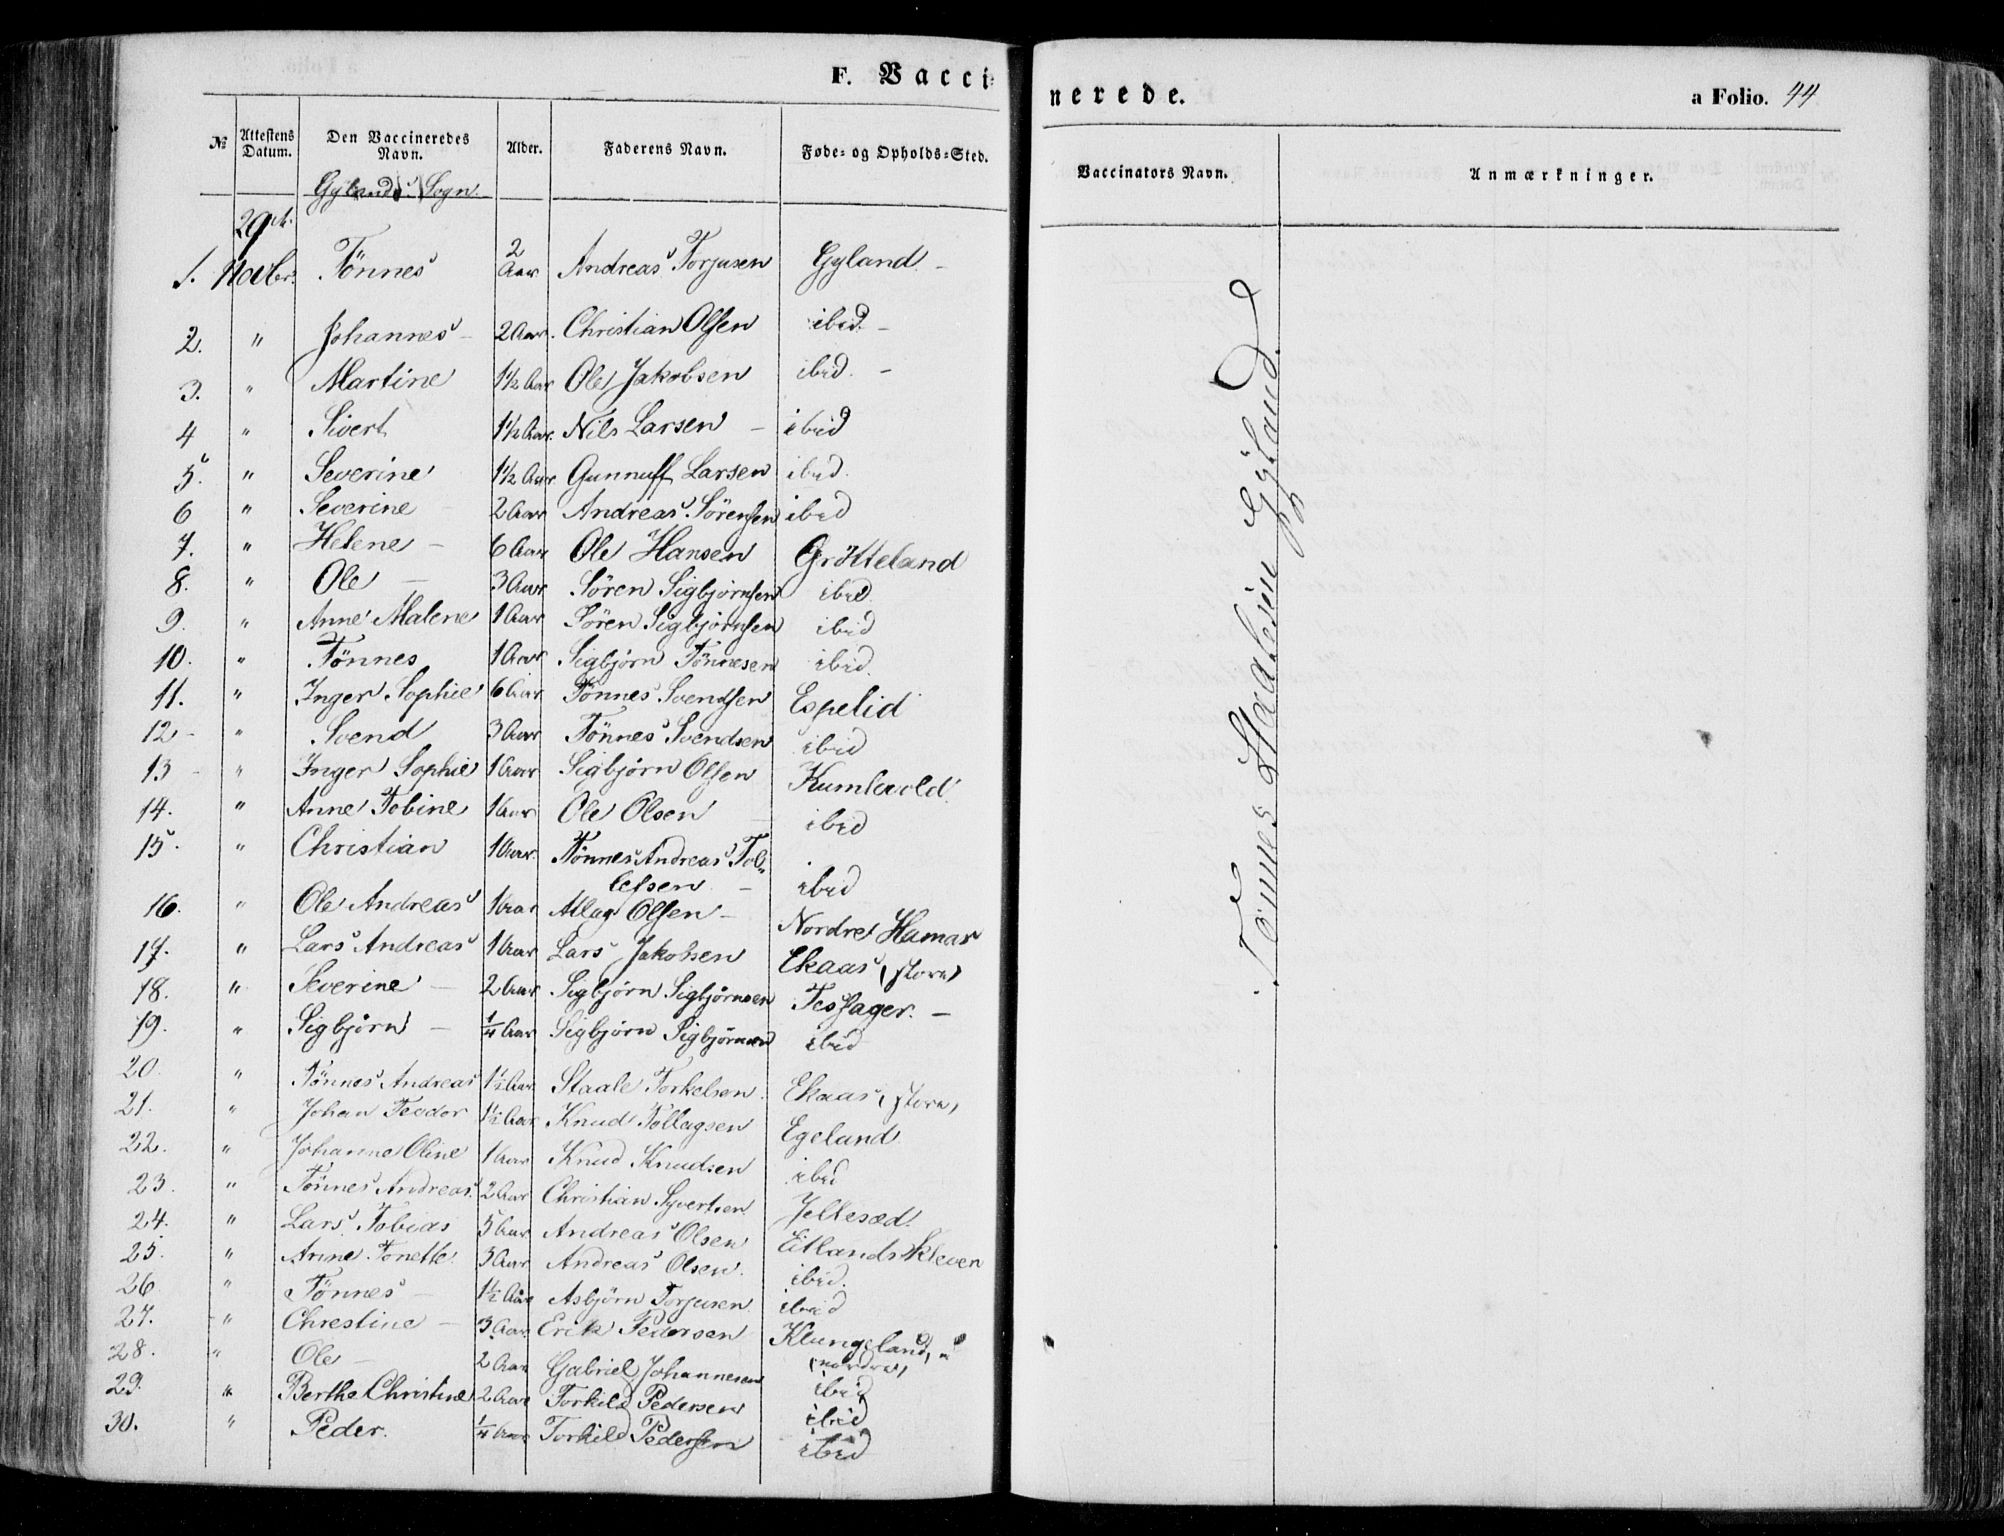 F. Vacci-
nerede.
a Folio. 44
№ Attestens Datum. Den Vaccineredes Navn. Alder. Faderens Navn. Føde- og Opholds-Sted. Vaccinators Navn. Anmærkninger.
Gylands Sogn.
29de
1. Novbr. Tönnes 2 Aar Andreas Torjusen Gyland. -
2. " Johannes - 2 Aar. Christian Olsen ibid. -
3. " Martine 1½ Aar Ole Jakobsen ibid. -
4 " Sivert 1½ Aar. Nils Larsen - ibid
5. " Severine 1½ Aar Gunnuff Larsen ibid.
6 " Severine - 2 Aar Andreas Sörensen ibid
7. " Helene - 6 Aar Ole Hansen Grötteland
8. " Ole - 3 Aar Sören Sigbjörnsen ibid.
9. " Anne Malene 1 Aar Sören Sigbjörnsen ibid
10. " Tönnes 1 Aar Sigbjörn Tönnesen ibid.
11. " Inger Sophie 6 Aar Tönnes Svendsen Espelid
12 - " Svend 3 Aar Tönnes Svendsen ibid
13 - " Inger Sophie 1 Aar Sigbjörn Olsen Kumlevold.
14. " Anne Tobine 1 Aar Ole Olsen - ibid
15. " Christian 1 Aar. Tönnes Andreas Tol-
lefsen - ibid
16. " Ole Andreas 1 Aar Atlag Olsen - Nordre Hamar
17. " Lars Andreas 1 Aar Lars Jakobsen Ekaas (store)
18. " Severine - 2 Aar Sigbjörn Sigbjörnsen Tesager. -
19. " Sigbjörn - ¼ Aar Sigbjörn Sigbjörnsen ibid
20. " Tönnes Andreas 1½ Aar Staale Torkelsen. Ekaas (store)
21. " Johan Teodor 1½ Aar Knud Tollagsen Egeland.
22. " Johanne Oline 1 Aar Knud Knudsen ibid
23. " Tönnes Andreas. 2 Aar Christian Syvertsen Jellesæd.
24. " Lars Tobias 5 Aar Andreas Olsen Eitlandskleven
25. " Anne Tonette. 3 Aar Andreas Olsen. ibid.
26 " Tönnes - 1½ Aar Asbjörn Torjusen ibid
27. " Chrestine - 3 Aar Erik Pedersen Klungeland,
(nordre)
28. " Ole - 2 Aar Gabriel Johannesen ibid
29. " Berthe Christine 2 Aar Torkild Pedersen ibid
30. " Peder. ¼ Aar Torkild Pedersen ibid
Tönnes Staalesen Gyland.